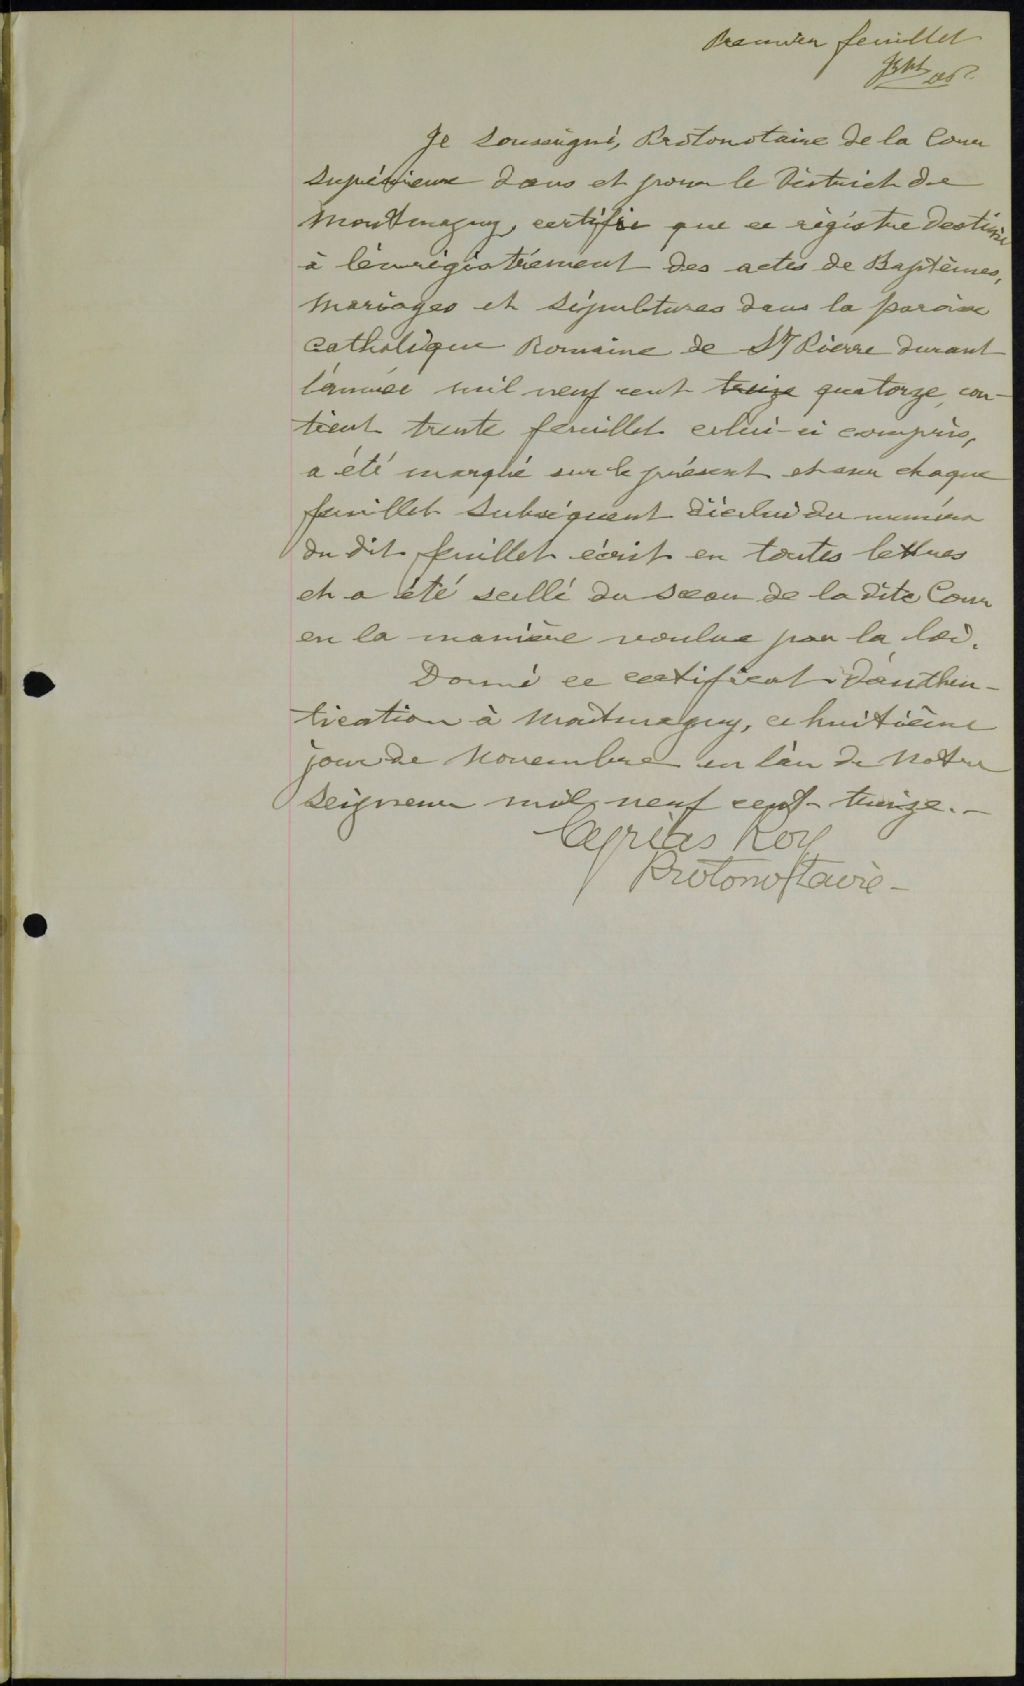 Premier feuillet
Je soussigné, Protonotaire de la Cour
Supérieure dans et pour le District de
Montmagny, certifie que ce régistre destiné
à l'enrégistrement des actes de Baptêmes,
Mariages et Sépultures dans la paroisse
Catholique Romaine de St Pierre durant
l'année mil neuf cent treize quatorze, con-
tient trente feuillet celui-ci compris,
a été marqué sur le présent et sur chaque
feuillet subséquent d'icelui du numéro
du dit feuillet écrit en toutes lettres
et a été scellé du sceau de la dite Cour
en la manière voulue par la loi.
Donné ce certificat d'authen-
tication à Montmagny, ce huitième
jour de Novembre en l'an de Notre
Seigneur mil neuf cent treize.-
Cyrias Roy
Protonotaire-